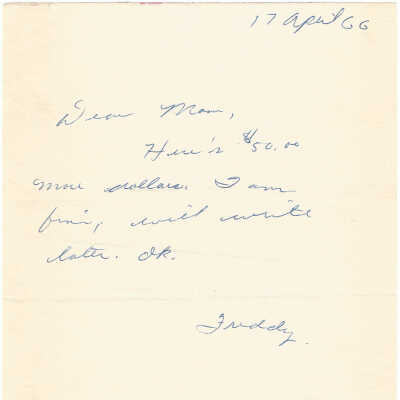 17 April 66
Dear Mom,
Here's $50.00
more dollars. I am
fin, will write
later. OK.
Freddy.